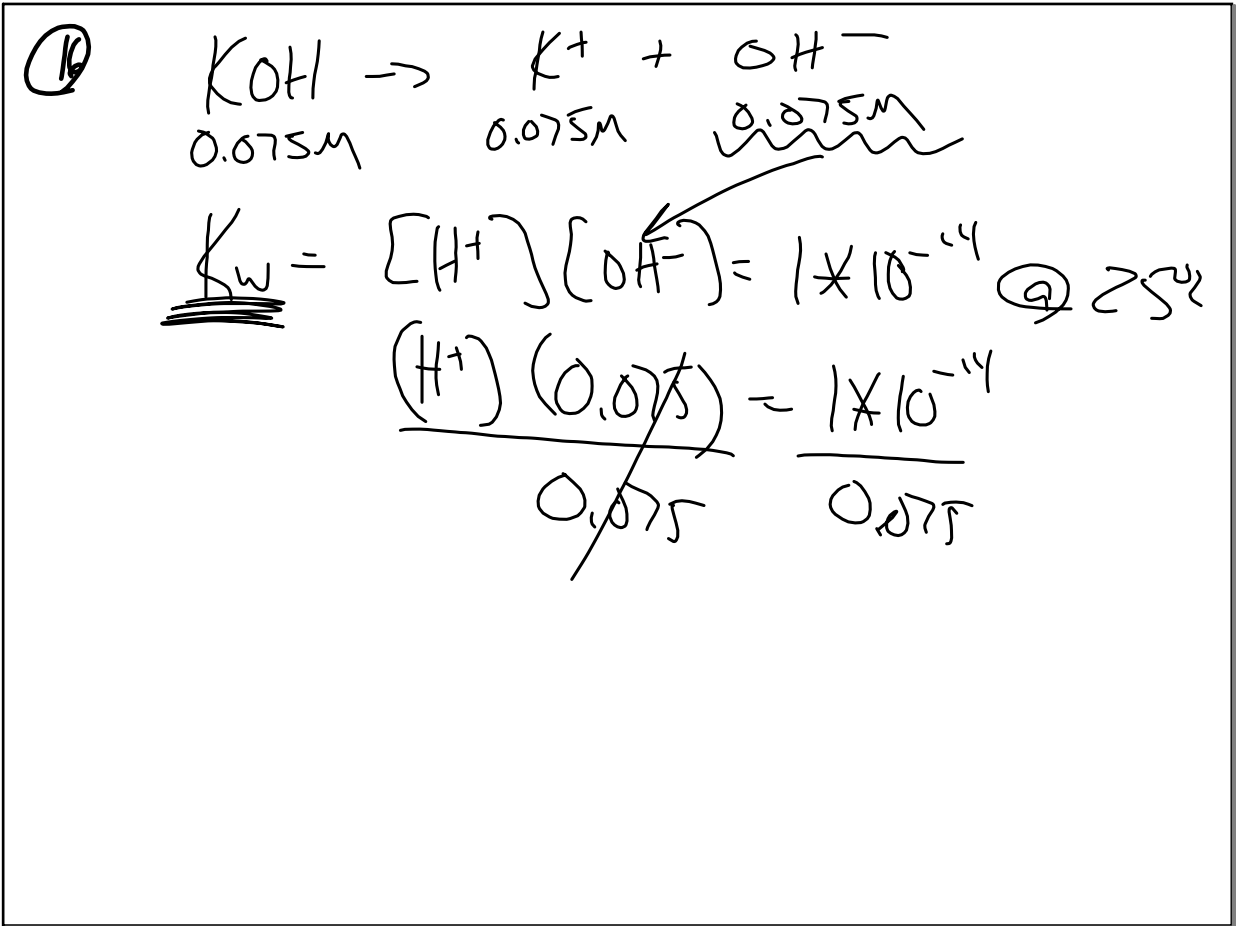 16 KOH → K⁺ + OH⁻
0.075M 0.075M 0.075M
Kw = [H⁺][OH⁻] = 1*10⁻¹⁴ @ 25°C
(H⁺) (0.075) = 1*10⁻¹⁴
0.075 0.075